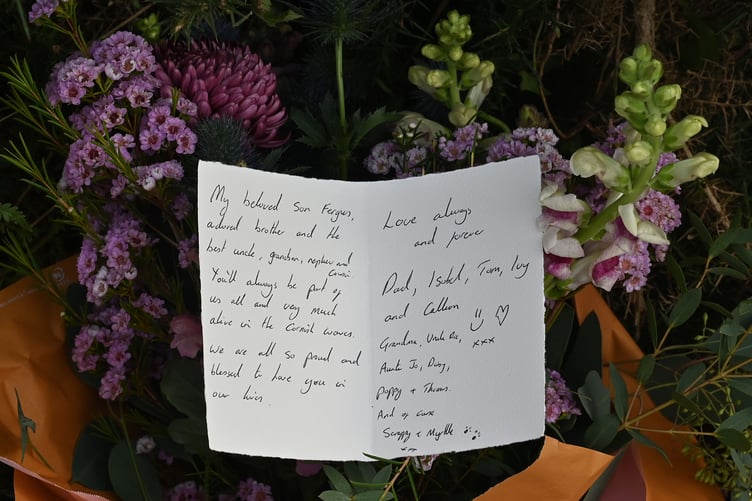 My beloved Son Fergus,
adored brother and the
best uncle, grandson, nephew and
cousin.
You'll always be part of
us all and very much
alive in the Cornish waves.
We are all so proud and
blessed to have you in
our lives.
Love always
and forever
Dad, Isobel, Tom, Ivy
and Callum
Grandma, Uncle
xxx
Aunty Jo, Daisy,
Poppy + Thomas.
And of course
Scrappy + Myrtle